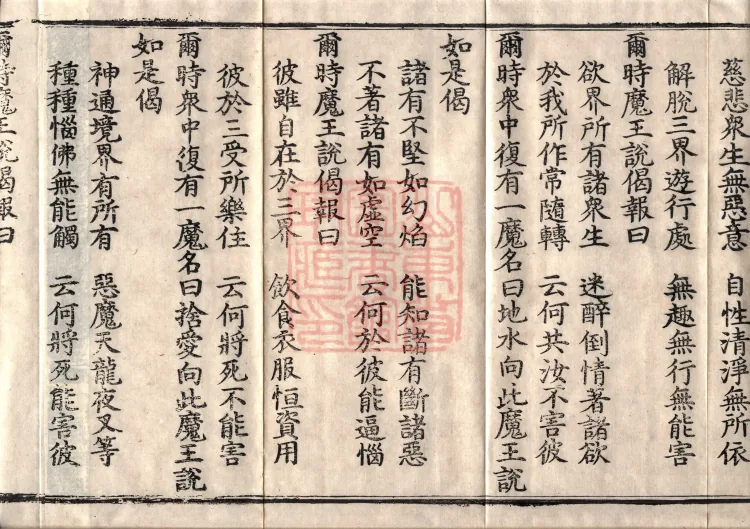 慈悲衆生無惡意　自性清淨無所依
解脫三界遊行處　無趣無行無能害
爾時魔王說偈報曰
欲界所有諸衆生　迷醉倒情著諸欲
於我所作常隨轉　云何共汝不害彼
爾時衆中復有一魔名曰地水向此魔王說
如是偈
諸有不堅如幻焰　能知諸有斷諸惡
不著諸有如虛空　云何於彼能逼惱
爾時魔王說偈報曰
彼雖自在於三界　飲食衣服恒資用
彼於三受所樂住　云何將死不能害
爾時衆中復有一魔名曰捨愛向此魔王說
如是偈
神通境界有所有　惡魔天龍夜叉等
種種惱佛無能觸　云何將死能害彼
爾時魔王說偈報曰